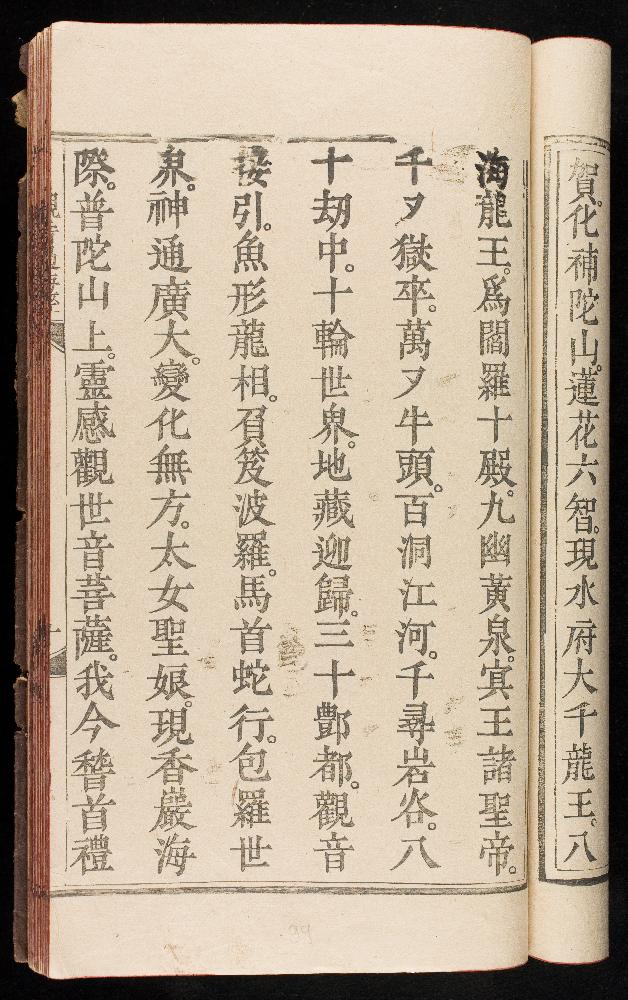 賀。化補陀山。蓮花六智。現水府大千龍王。八
海龍王。爲閻羅十殿。九幽黃泉。㝠王諸聖帝。
千ヌ獄卒。萬ヌ牛頭。百洞江河。千尋岩谷。八
十刼中。十輪世界。地藏迎歸。三十酆都。觀音
接引。魚形龍相。頁笈波羅。馬首蛇行。包羅世
界。神通廣大。變化無方。太女聖娘。現香嚴海
際。普陀山上。靈感觀世音菩薩。我今稽首禮